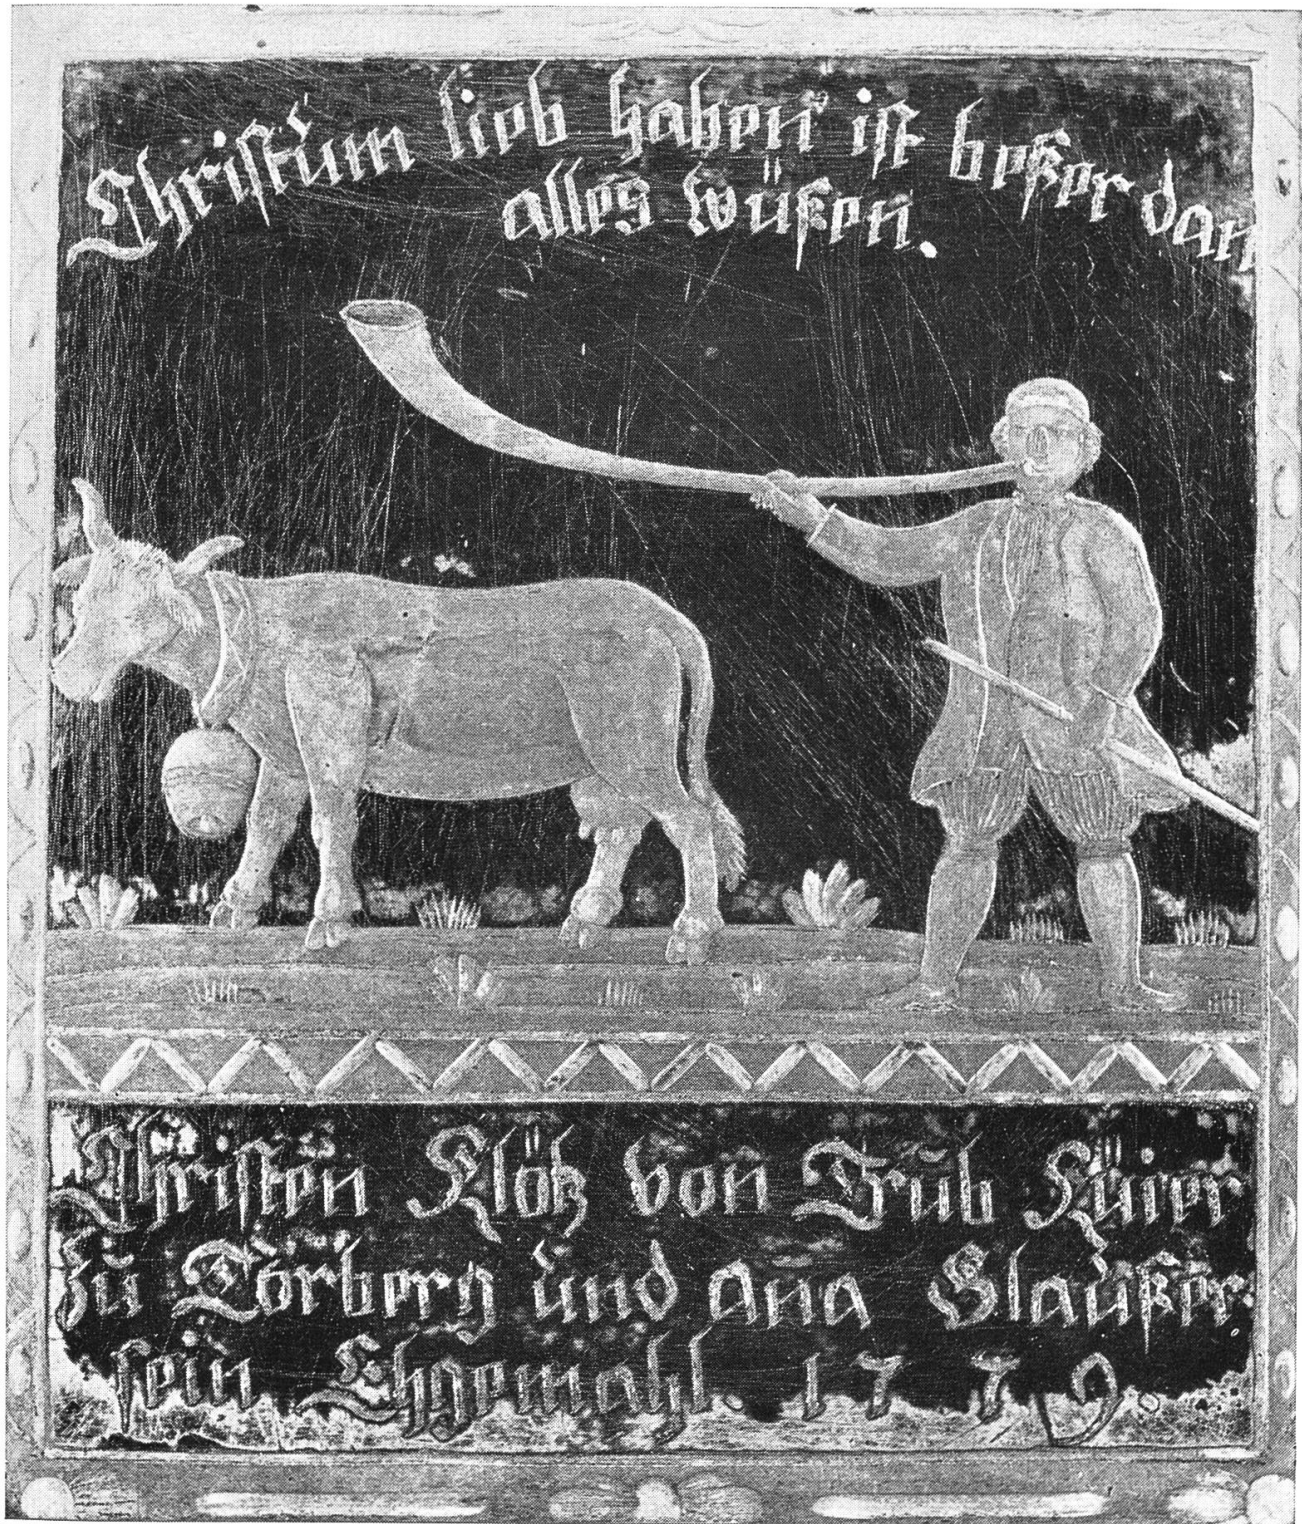 Christum lieb haben ist beßer dan
alles wüßen.
Christen Klötz von Trub Küier
zu Torberg und Ana Slaußer
sein Ehgemahl. 1779.